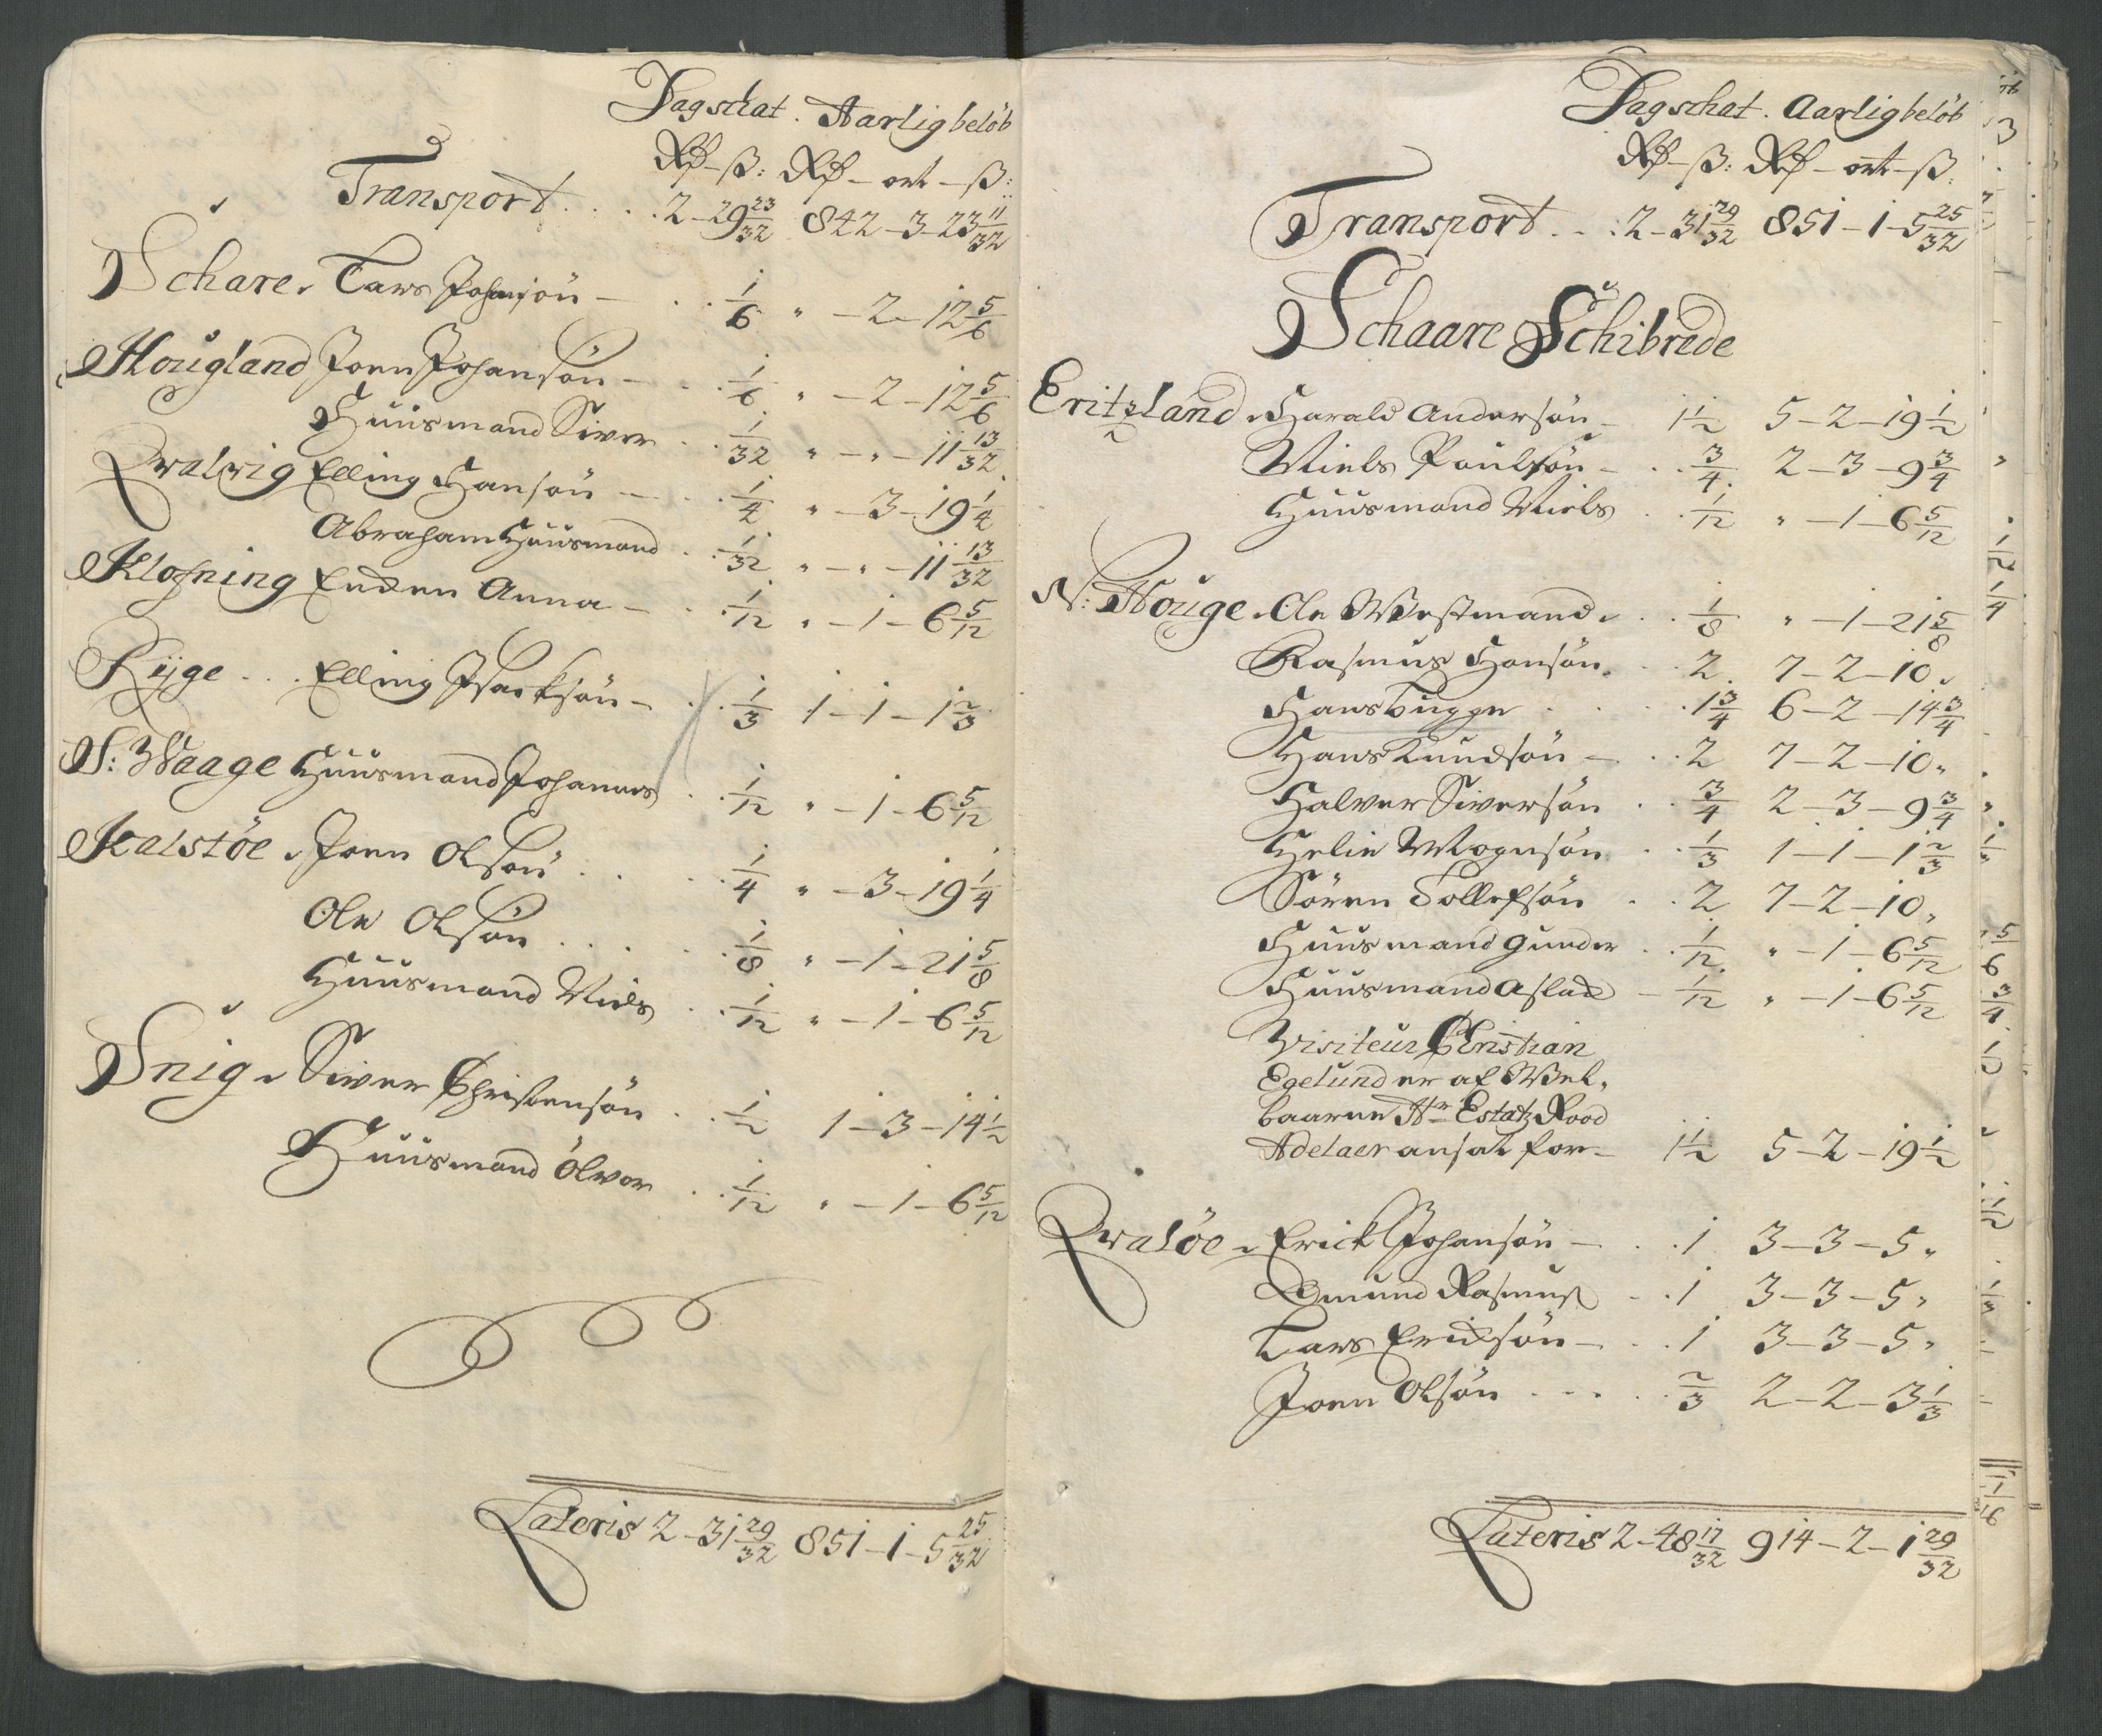 Dagschat. Aarlig beløb
Rd–ß: Rd – ort – ß:
Transport . . . . 2–29 23/32 842–3–23 11/32
Schare. Lars Johansön – . . 1/6 " –2–12 5/6
Hougland Joen Johansön – . . 1/6 " –2–12 5/6
Huusmand Siver . . 1/32 " – " –11 13/32
Qvalvig Elling Hansön – . . 1/4 " –3–19 1/4
Abraham Huusmand . . 1/32 " – " –11 13/32
Klofning Encken Anna – . . 1/12 " –1–6 5/12
Ryge . . . Elling Isacksön – . . 1/3 1–1–1 2/3
S: Waage Huusmand Johannes . . 1/12 " –1–6 5/12
Kalstöe . Joen Olsön . . . . 1/4 " –3–19 1/4
Ole Olsön . . . . . 1/8 " –1–21 5/8
Huusmand Niels . . 1/12 " –1–6 5/12
Snig . Siver Christensön . . 1/2 1–3–14 1/2
Huusmand Olver . . 1/12 " –1–6 5/12
Lateris 2–31 29/32 851–1–5 25/32
Dagschat. Aarlig beløb
Rd–ß: Rd – ort–ß:
Transport . . : 2–31 29/32 851–1–5 25/32
Schaare Schibrede
Eritzland . Harald Andersön – 1 1/2 5–2–19 1/2
Niels Poulsön – . . 3/4 2–3–9 3/4
Huusmand Niels . . 1/12 " –1–6 5/12
N: Houge . Ole Westmand . . . 1/8 " –1–21 5/8
Rasmus Hansön . . . 2 7–2–10 "
Hans Bugge . . . . 1 3/4 6–2–14 3/4
Hans Knudsön – . . 2 7–2–10 "
Halver Siversön . . 3/4 2–3–9 3/4
Helie Mognsön . . 1/3 1–1–1 2/3
Sören Tollefsön . . 2 7–2–10 "
Huusmand Gunder . . 1/12 " –1–6 5/12
Huusmand Aslack – 1/12 " –1–6 5/12
Visiteur Christian
Egelund er af Wel.
baarne Hr Estatz Raad
Adelaer ansat for – 1 1/2 5–2–19 1/2
Qvalöe . Erick Johansön – . . 1 3–3–5 "
Omund Rasmus . . 1 3–3–5 "
Lars Ericksön – . . 1 3–3–5 "
Joen Olsön . . . . . 2/3 2–2–3 1/3
Lateris 2–48 17/32 914–2–1 29/32